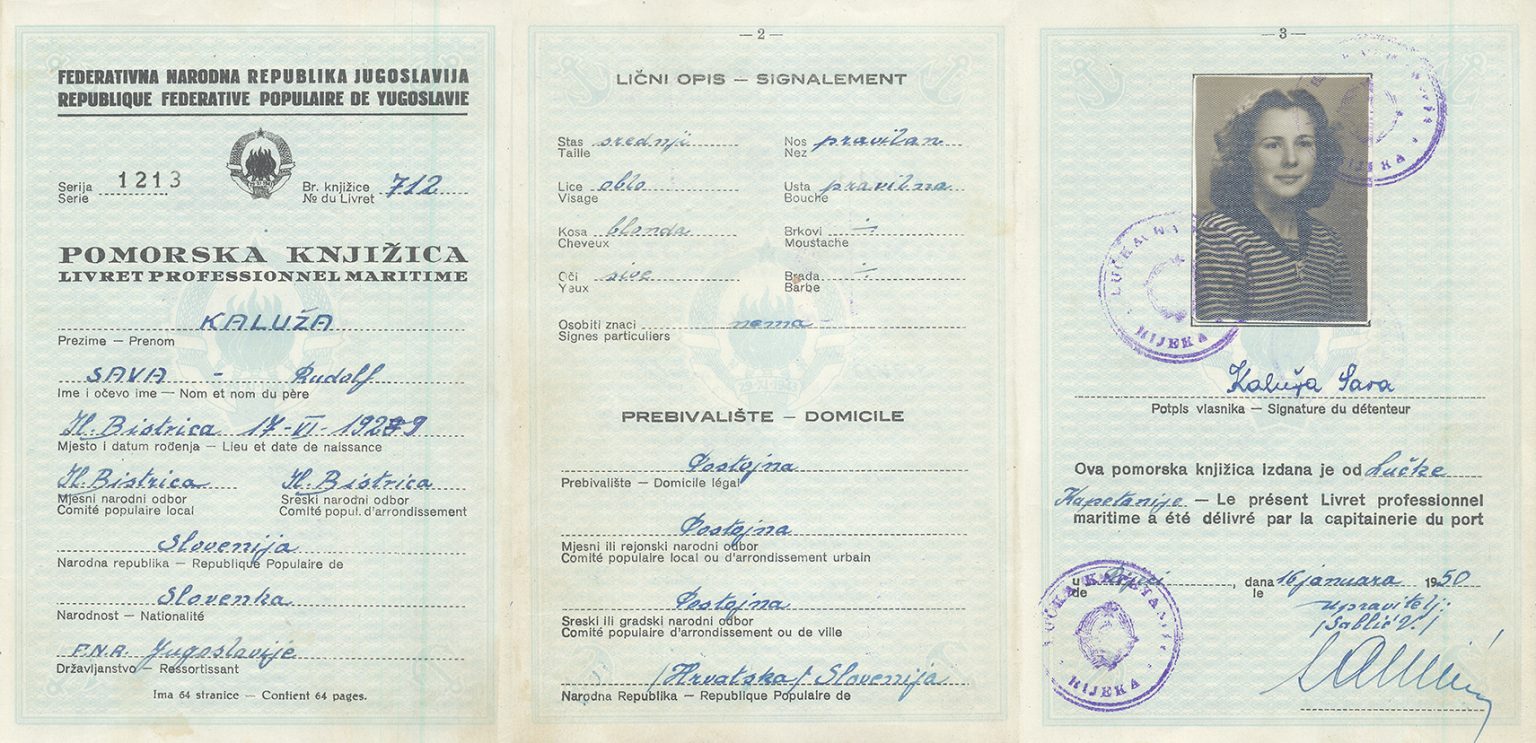 FEDERATIVNA NARODNA REPUBLIKA JUGOSLAVIJA
REPUBLIQUE FEDERATIVE POPULAIRE DE YUGOSLAVIE
Serija 1213 Br. knjižice 712
Serie № du Livret
POMORSKA KNJIŽICA
LIVRET PROFESSIONNEL MARITIME
KALUŽA
Prezime — Prenom
SAVA - Rudolf
Ime i očevo ime — Nom et nom du père
Il. Bistrica 17-VI-1929
Mjesto i datum rođenja — Lieu et date de naissance
Il. Bistrica Il. Bistrica
Mjesni narodni odbor Sreski narodni odbor
Comité populaire local Comité popul. d'arrondissement
Slovenija
Narodna republika — Republique Populaire de
Slovenka
Narodnost — Nationalité
F.N.R. Jugoslavije
Državljanstvo — Ressortissant
Ima 64 stranice — Contient 64 pages.
— 2 —
LIČNI OPIS — SIGNALEMENT
Stas srednji Nos pravilan
Taille Nez
Lice oblo Usta pravilna
Visage Bouche
Kosa blonda Brkovi ÷
Cheveux Moustache
Oči sive Brada ÷
Yeux Barbe
Osobiti znaci nema -
Signes particuliers
PREBIVALIŠTE — DOMICILE
Postojna
Prebivalište — Domicile légal
Postojna
Mjesni ili rejonski narodni odbor
Comité populaire local ou d'arrondissement urbain
Postojna
Sreski ili gradski narodni odbor
Comité populaire d'arrondissement ou de ville
/Hrvatska/ Slovenija
Narodna Republika — Republique Populaire de
— 3 —
RIJEKA
LUČKA
RIJEKA
Kaluža Sava
Potpis vlasnika — Signature du détenteur
Ova pomorska knjižica izdana je od Lučke
Kapetanije — Le présent Livret professionnel
maritime a été délivré par la capitainerie du port
u Rijeci, dana 16 januara 1950
de le
upravitelj:
/Sablić V./
LUČKA KAPETANIJA
RIJEKA